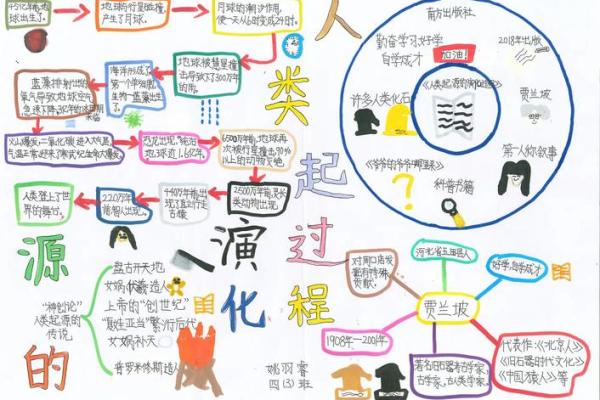 45亿年前地
球出生了。
地球与行星碰撞,
产生了月球。
月球的潮汐作用,
使一天从6时变成24时。
地球被彗星撞
击导致了300万年
的雨。
海洋形成了,
第一个单细胞
生物—蓝藻出
生了。
蓝藻排射出的
氧气导致地球空气
火山爆发,二氧化碳进入大气层,
恐龙出现,统治
地球近1.6亿年。
6500万年前,地球再
次被行星撞击,70%
以上的动物灭绝。
2500万年前,灵长
类动物出现。
440万年前出
现了直立行走
古猿
220万年
前智人出现。
人类登上了世
界的舞台。
人类起源的演化过程
盘古开天地
女娲伏羲造人
上帝的“创世纪”
“夏娃亚当”繁衍后代
女娲补天
普罗米修斯造人
“神创论”
人类起源的
传说
姚羽睿
四(3)班
南方出版社
勤奋学习好学
自学成才
加油!
2018年出版
《人类起源的演化过程》
许多人类化石
贾兰坡
《爷爷的爷爷哪里来》
第一人称叙事
科普书籍
贾兰坡
对周口店发
掘有特殊
贡献。
河北省玉田县人
好学,自学成才
1908年—2001年
著名旧石器考古学家,
古学家,古人类学家。
代表作:《北京人》
《旧石器时代文化》
《中国猿人》等